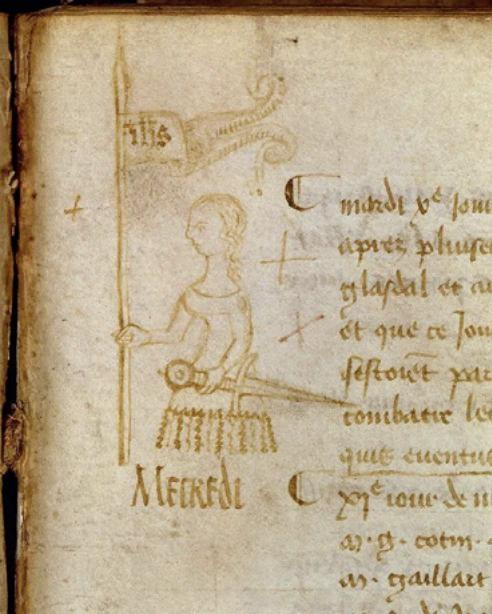 ihs
mardi xe Jour
aprez pluise
glasdal et au
et que ce Jou
sestoiēt par
combatre le
quis eventue
MECREDI
xje iour de m
m. g. cotin.
m. gaillart